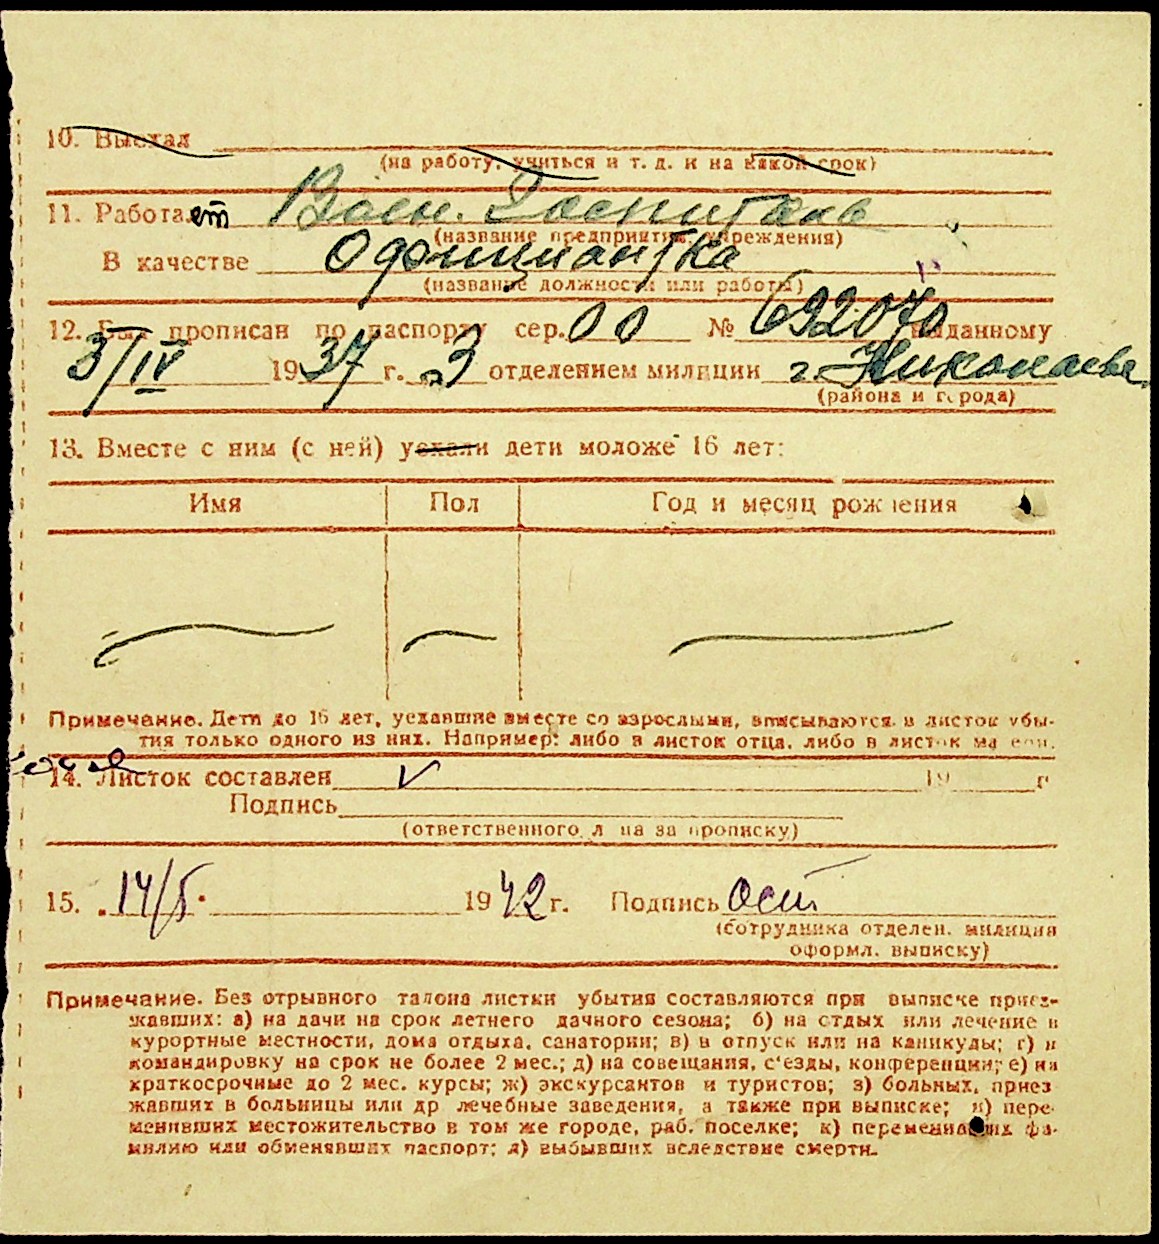 10. Выехал
(на работу, учиться и т. д. и на какой срок)
11. Работает Воен. Госпиталь
(название предприятия, учреждения)
В качестве Официантка
(название должности или работы)
12. Был прописан по паспорту сер. 00 № 692070 выданному
3/IV 1937 г. 3 отделением милиции г. Николаева
(района и города)
13. Вместе с ним (с ней) уехали дети моложе 16 лет:
Имя Пол Год и месяц рождения
Примечание. Дети до 16 лет, уехавшие вместе со взрослыми, вписываются в листок убы-
тия только одного из них. Например: либо в листок отца, либо в листок матери.
14. Листок составлен 19 г
Подпись
(ответственного лица за прописку)
15. 14/5. 1942 г. Подпись
(сотрудника отделен. милиции
оформл. выписку)
Примечание. Без отрывного талона листки убытия составляются при выписке приез-
жавших: а) на дачи на срок летнего дачного сезона; б) на отдых или лечение в
курортные местности, дома отдыха, санатории; в) в отпуск или на каникулы; г) в
командировку на срок не более 2 мес.; д) на совещания, с'езды, конференции; е) на
краткосрочные до 2 мес. курсы; ж) экскурсантов и туристов; з) больных, приез
жавших в больницы или др лечебные заведения, а также при выписке; и) пере-
менивших местожительство в том же городе, раб. поселке; к) переменивших фа-
милию или обменявших паспорт; л) выбывших вследствие смерти.